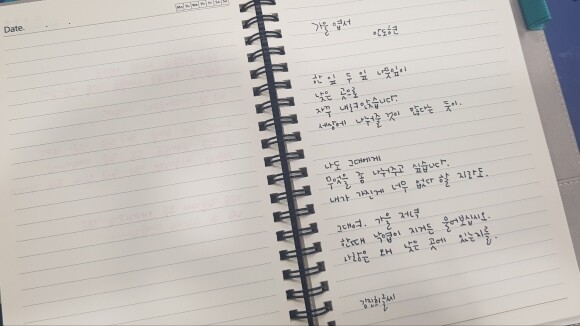 Date. . .
Mo Tu We Th Fr Sa Su
가을 엽서
안도현
한 잎 두 잎 나뭇잎이
낮은 곳으로
자꾸 내려앉습니다.
세상에 나누어줄 것이 많다는 듯이.
나도 그대에게
무엇을 좀 나눠주고 싶습니다.
내가 가진게 너무 없다 할 지라도.
그대여. 가을 저녁
한때 낙엽이 지거든 물어보십시오.
사랑은 왜 낮은 곳에 있는지를.